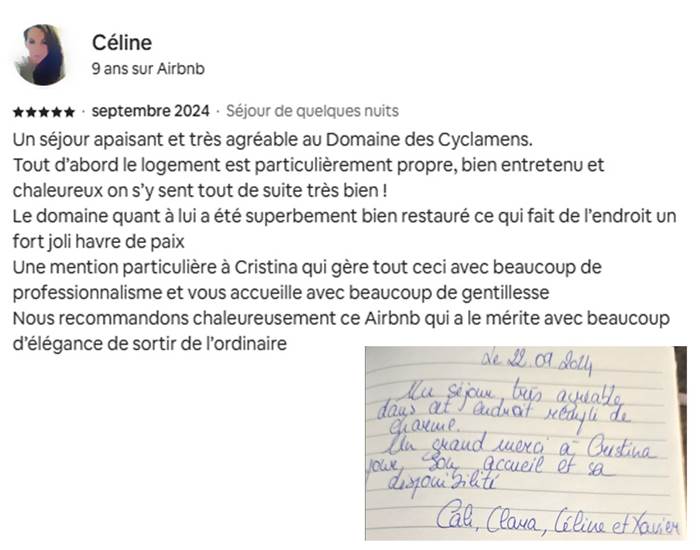 Céline
9 ans sur Airbnb
★★★★★ · septembre 2024 · Séjour de quelques nuits
Un séjour apaisant et très agréable au Domaine des Cyclamens.
Tout d’abord le logement est particulièrement propre, bien entretenu et
chaleureux on s’y sent tout de suite très bien !
Le domaine quant à lui a été superbement bien restauré ce qui fait de l’endroit un
fort joli havre de paix
Une mention particulière à Cristina qui gère tout ceci avec beaucoup de
professionnalisme et vous accueille avec beaucoup de gentillesse
Nous recommandons chaleureusement ce Airbnb qui a le mérite avec beaucoup
d’élégance de sortir de l’ordinaire
Le 22.09 2024
Un séjour très agréable
dans cet endroit rempli de
charme.
Un grand merci à Cristina
pour son accueil et sa
disponibilité
Cali, Clara, Céline et Xavier